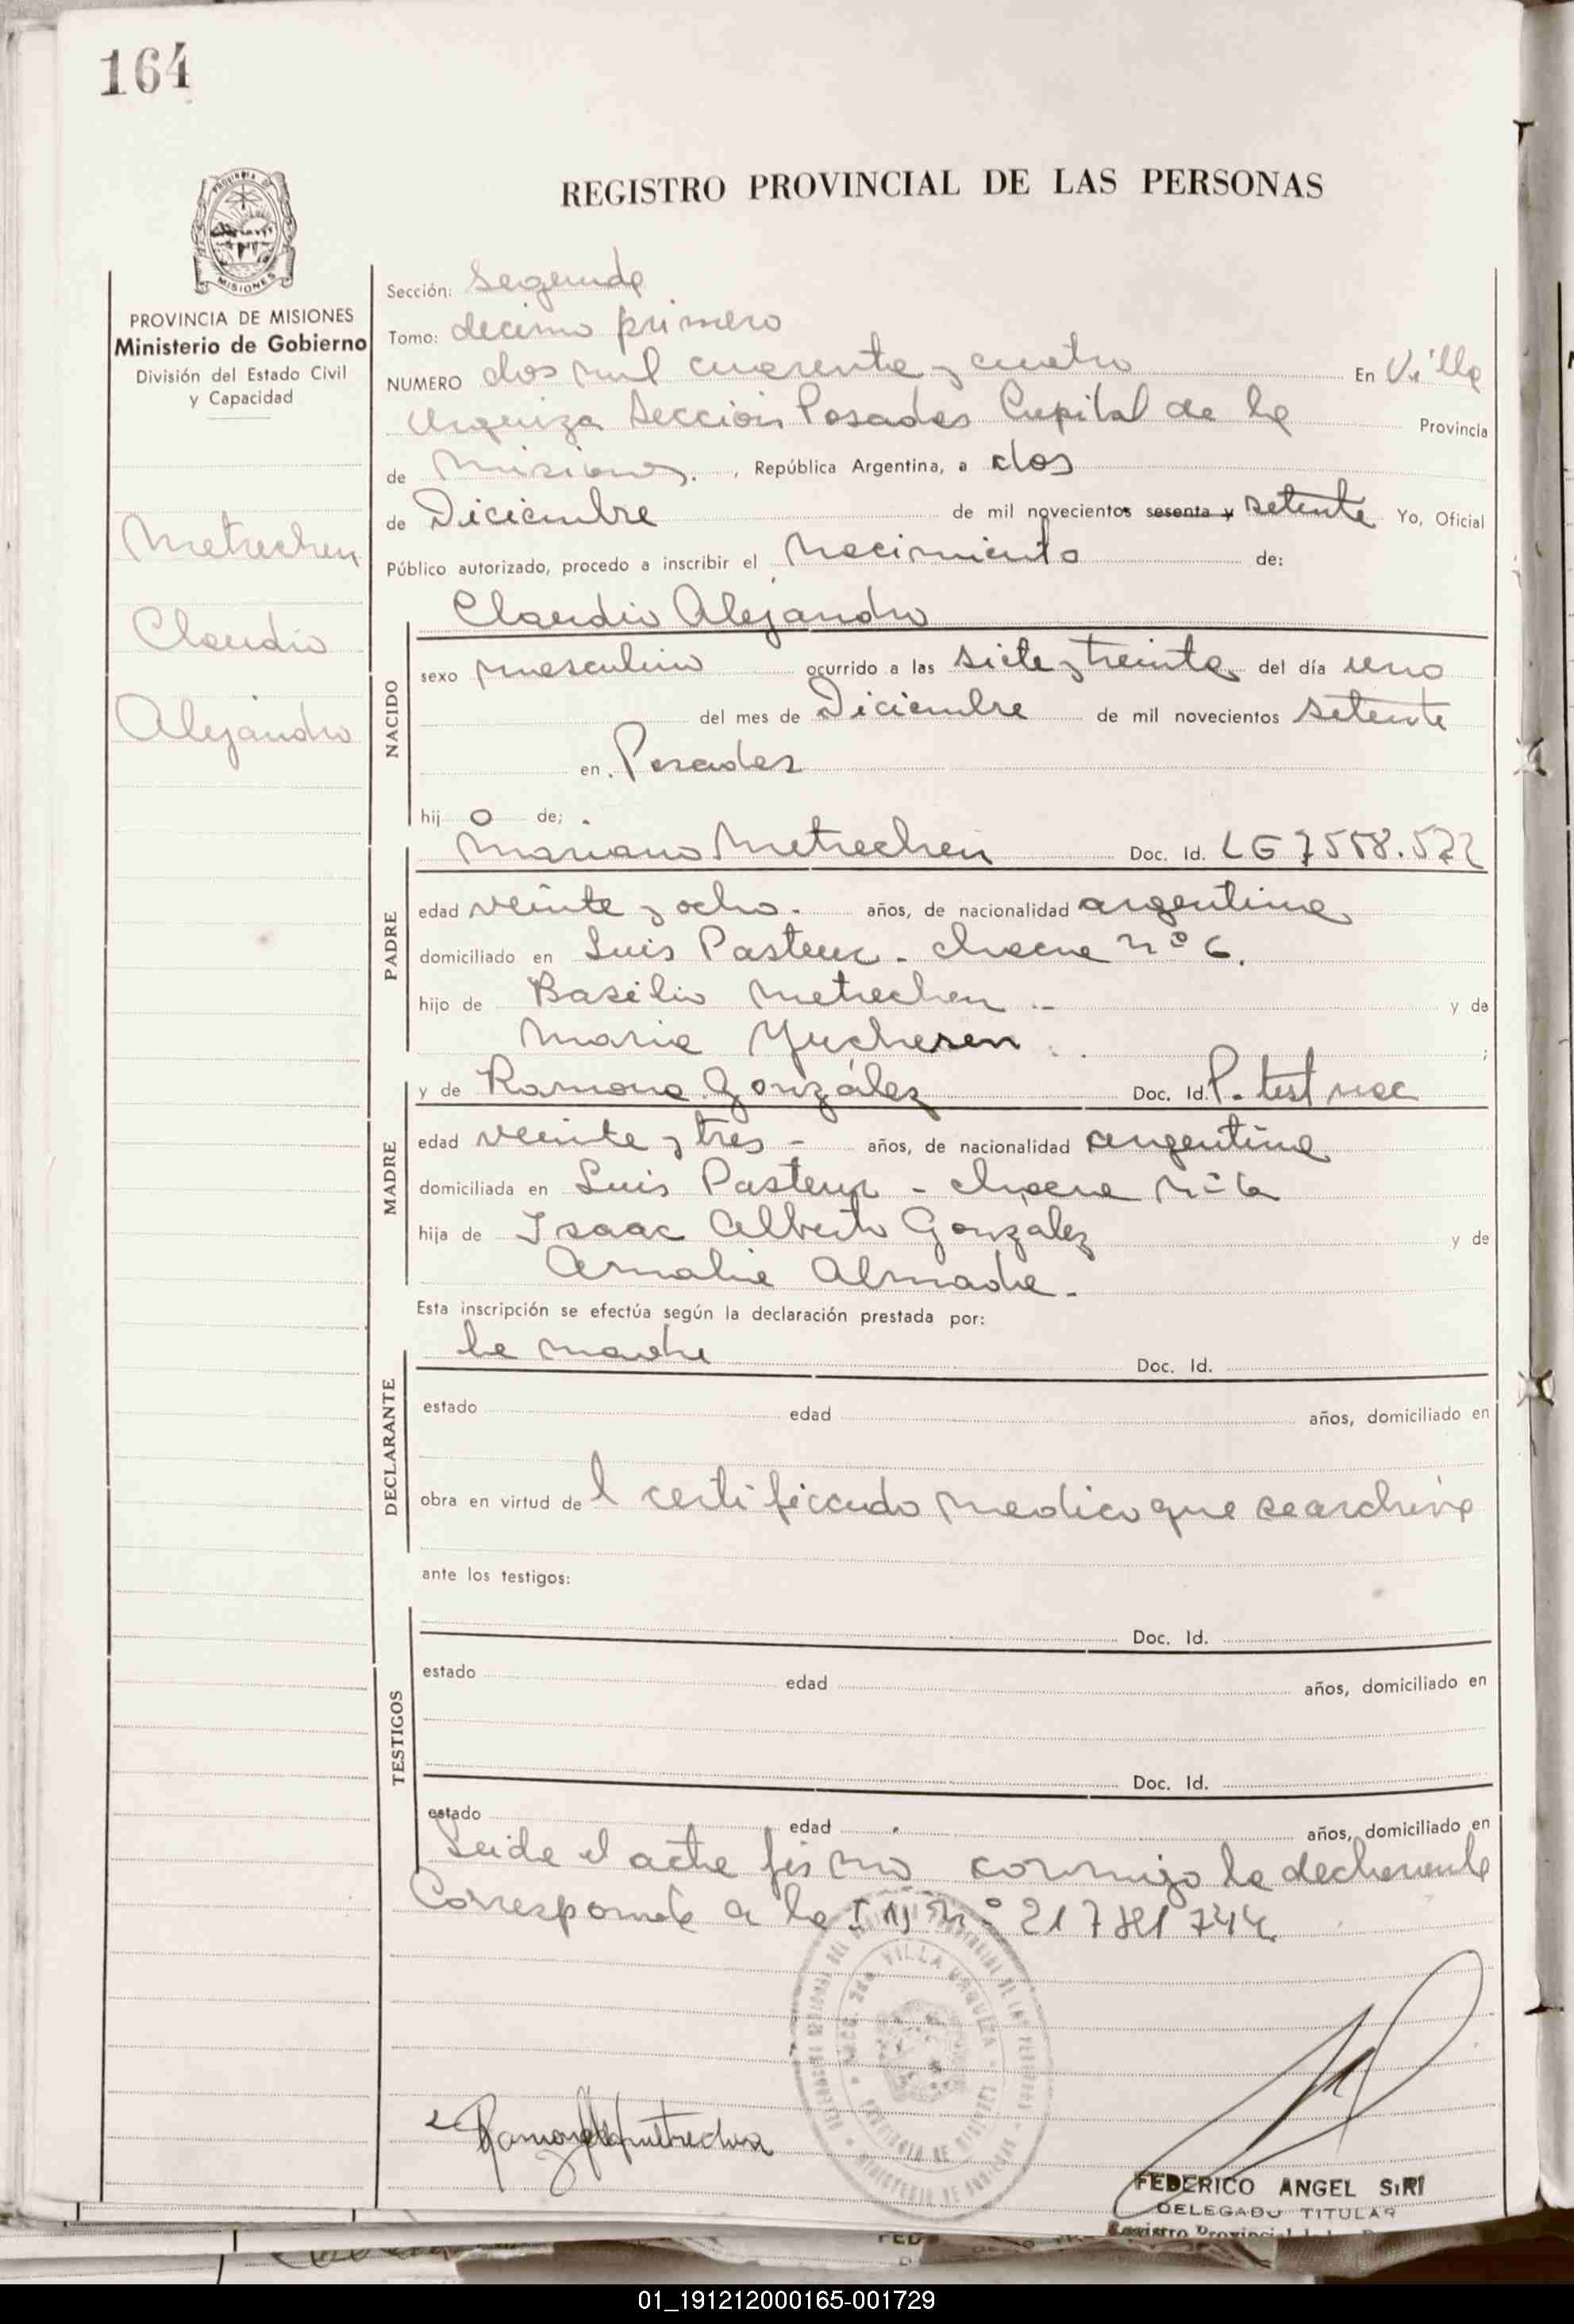 164
REGISTRO PROVINCIAL DE LAS PERSONAS
MISIONES
PROVINCIA DE MISIONES
Ministerio de Gobierno
División del Estado Civil
y Capacidad
Metrechen
Claudio
Alejandro
Sección: Segunda
Tomo: decimo primero
NUMERO dos mil cuarenta y cuatro En Villa
Urquiza Sección Posadas Capital de la Provincia
de Misiones. , República Argentina, a dos
de Diciembre de mil novecientos sesenta y setenta Yo, Oficial
Público autorizado, procedo a inscribir el Nacimiento de:
Claudio Alejandro
NACIDO
sexo masculino ocurrido a las siete y treinta del día uno
del mes de Diciembre de mil novecientos setenta
en Posadas
hij o de;
PADRE
Mariano Metrechen Doc. Id.
edad veinte y ocho. años, de nacionalidad argentina
domiciliado en Luis Pasteur - chacra nº 6.
hijo de Basilio Metrechen y de
Maria ;
MADRE
y de Ramona González Doc. Id. P. test nac
edad veinte y tres - años, de nacionalidad argentina
domiciliada en Luis Pasteur - chacra
hija de Isaac Alberto González y de
Amalia Almada.
Esta inscripción se efectúa según la declaración prestada por:
DECLARANTE
la madre Doc. Id.
estado edad años, domiciliado en
obra en virtud de l certificado medico que se archiva
ante los testigos:
TESTIGOS
Doc. Id.
estado edad años, domiciliado en
Doc. Id.
estado edad años, domiciliado en
Leida el acta firma conmigo la declarante
Corresponde a la
VILLA URQUIZA
PROVINCIA DE MISIONES
FEDERICO ANGEL SIRI
DELEGADO TITULAR
01_191212000165-001729